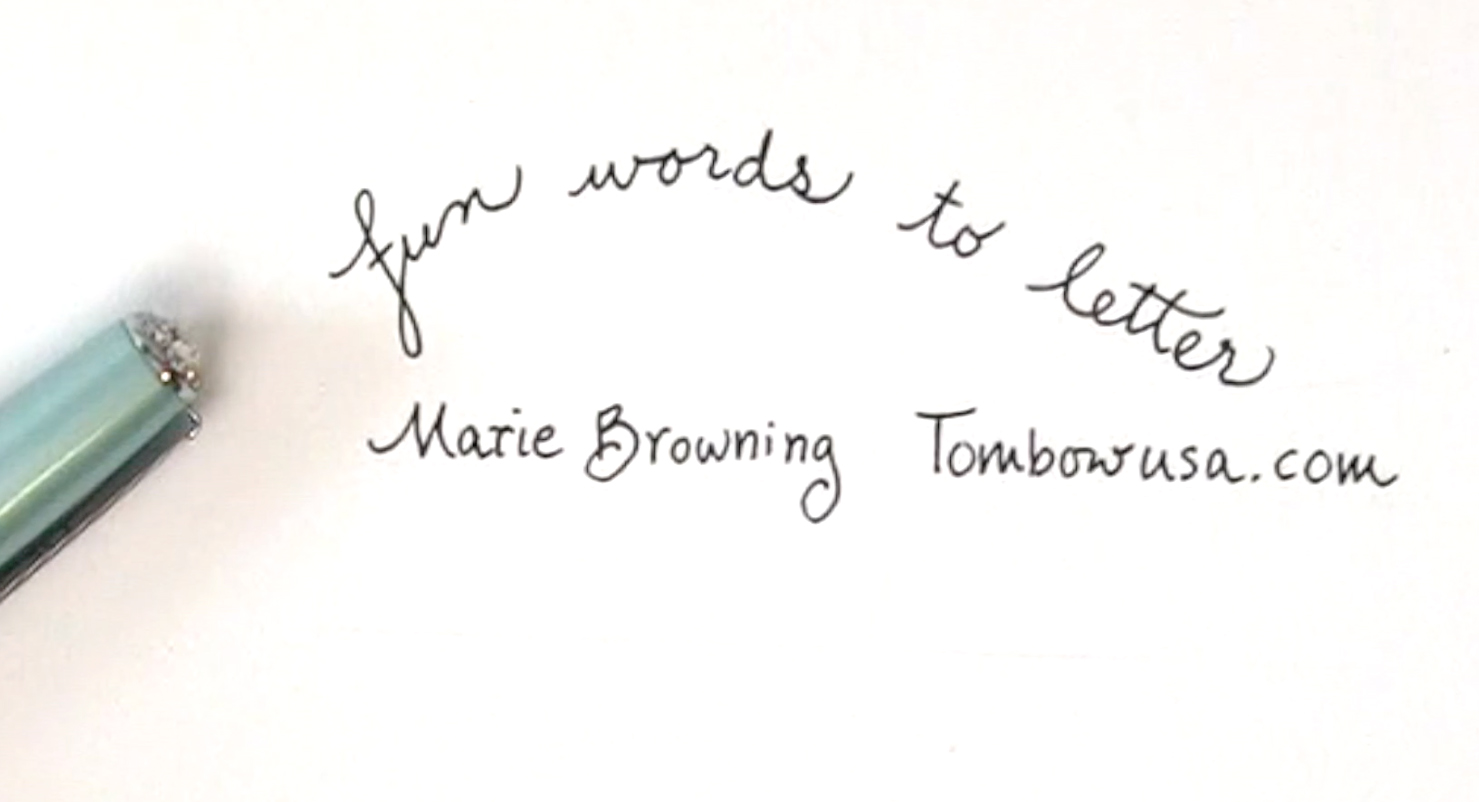 fun words to letter
Marie Browning Tombowusa.com